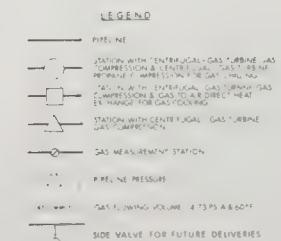 LEGEND
PIPELINE
STATION WITH CENTRIFUGAL - GAS TURBINE GAS
COMPRESSION & CENTRIFUGAL GAS TURBINE
PROPANE COMPRESSION FOR GAS CHILLING
STATION WITH CENTRIFUGAL GAS TURBINE GAS
COMPRESSION & GAS TO AIR DIRECT HEAT
EXCHANGE FOR GAS COOLING
STATION WITH CENTRIFUGAL GAS TURBINE
GAS COMPRESSION
GAS MEASUREMENT STATION
PIPELINE PRESSURE
GAS FLOWING VOLUME 14.73 PSIA & 60°F
SIDE VALVE FOR FUTURE DELIVERIES